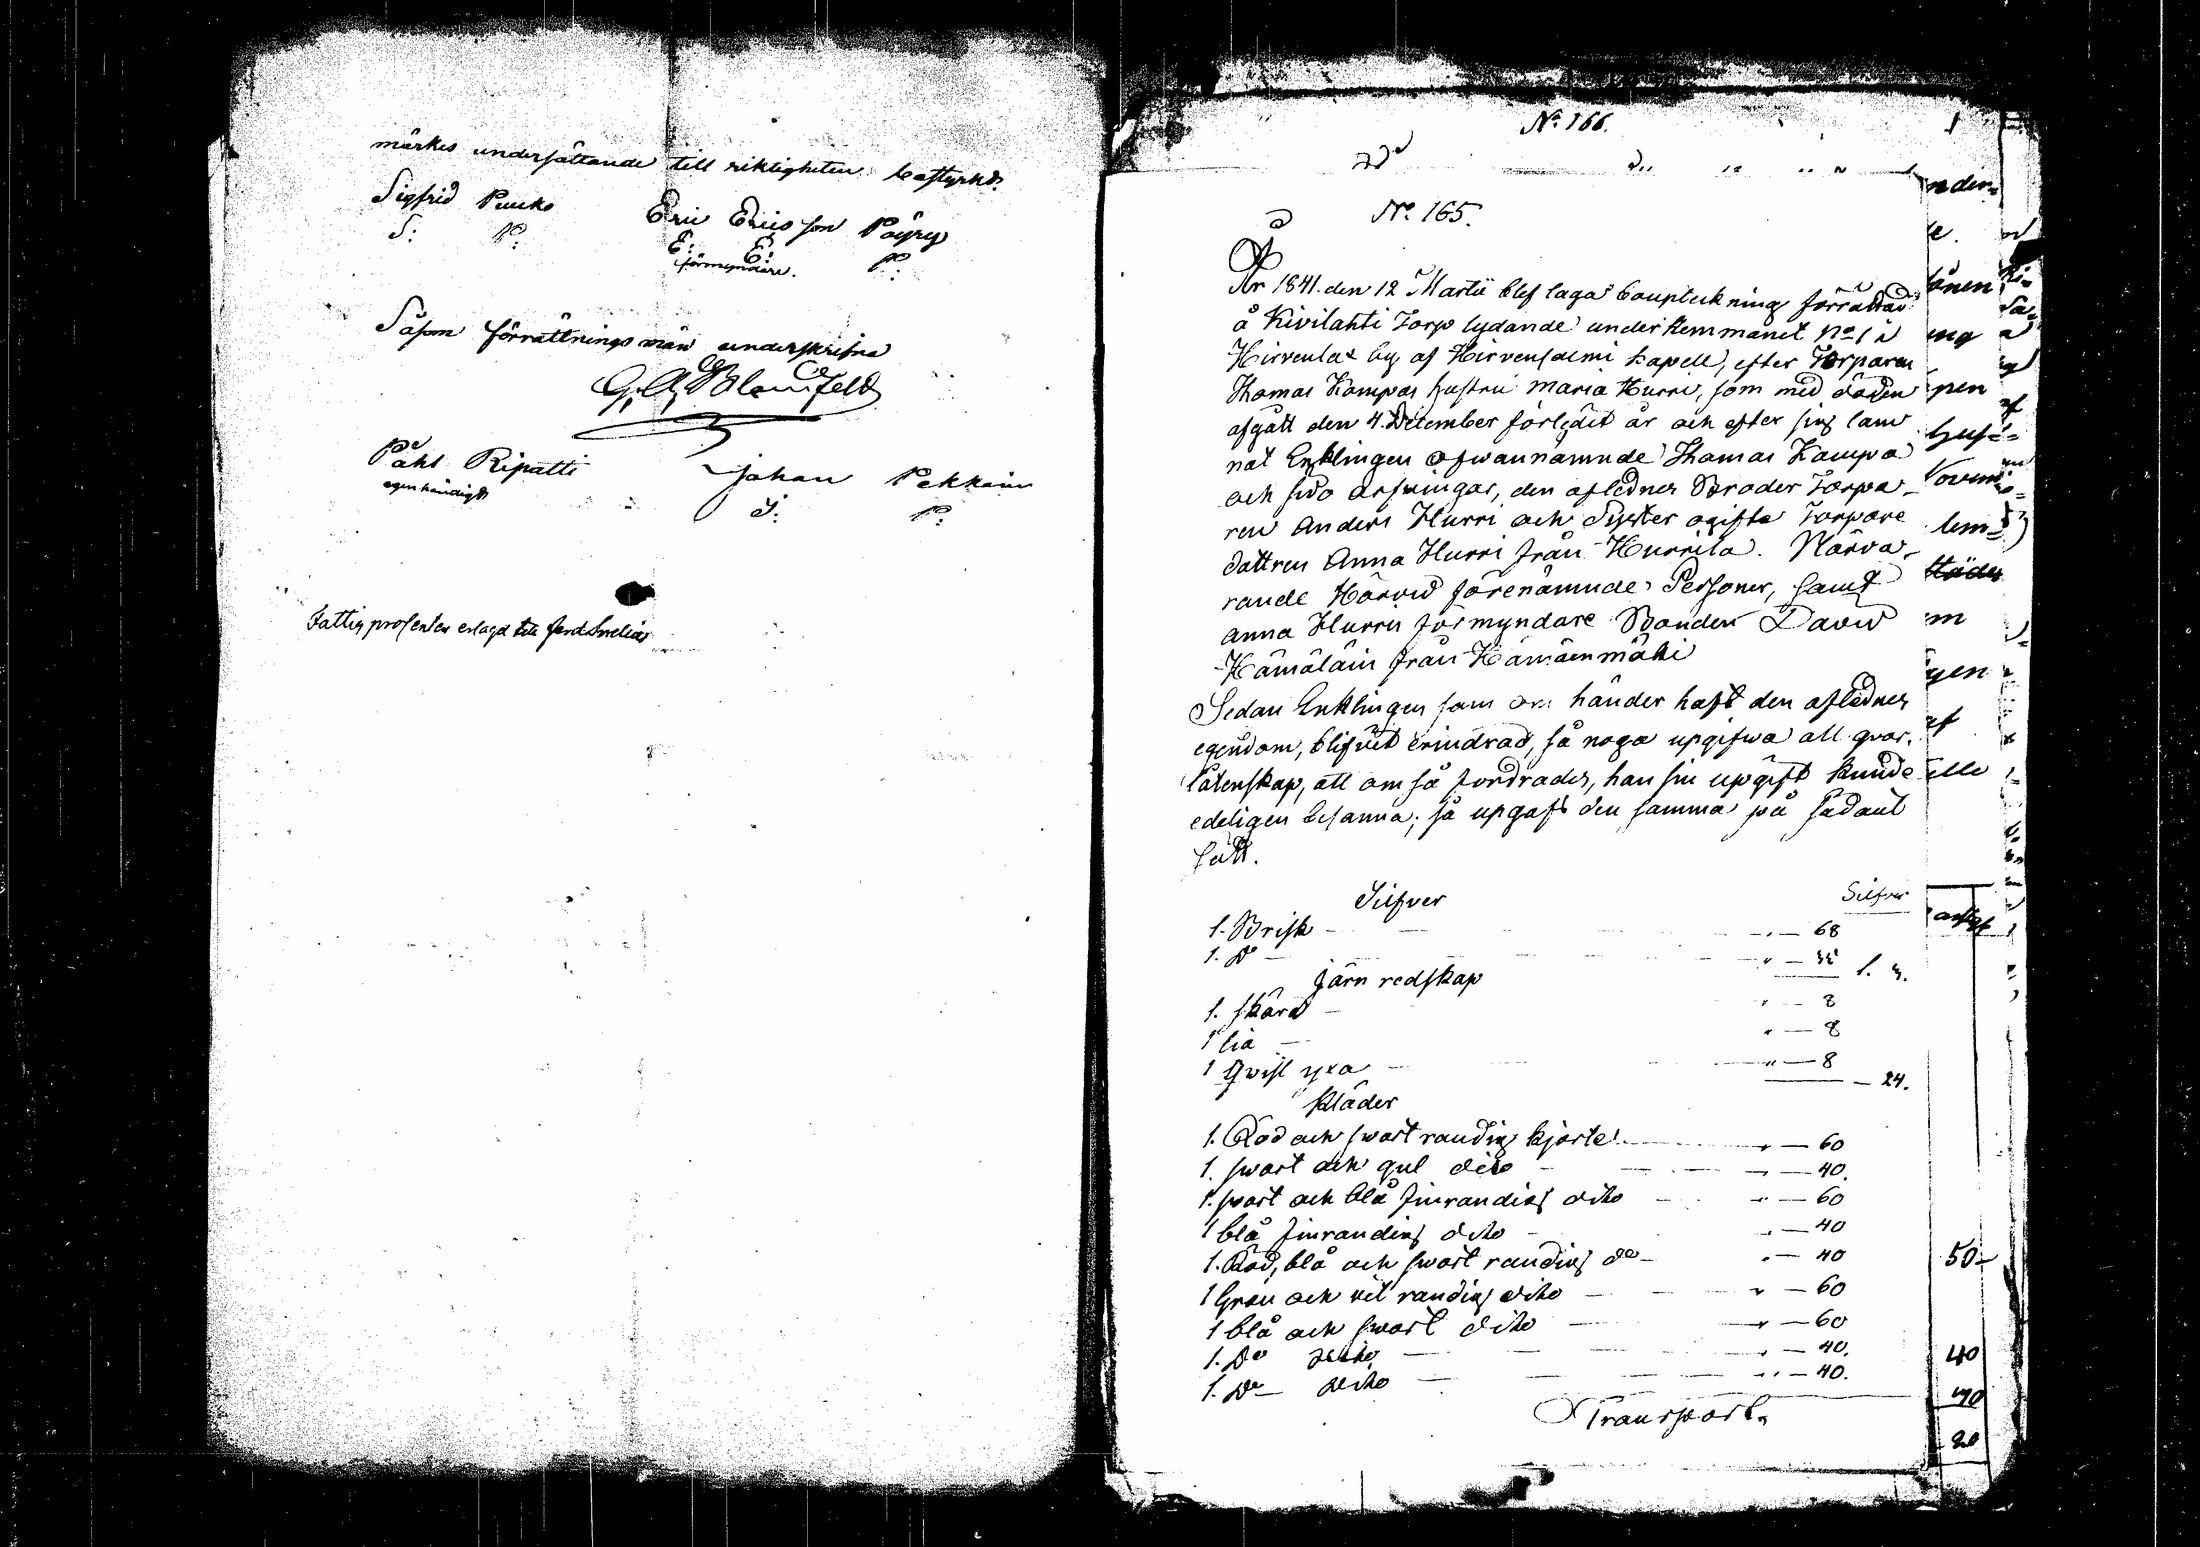 märkes undersättande till riktigheten bestyrkes
Sigfrid Puuko Eric Ericsson Pöyry
S: P: E: E: P:
förmyndare.
Såsom förrättningsmän underskrifva
G. A. Blomfeldt
Påhl Ripatti Johan Pekkain
egenhändigt J: P:
Fattig procenten erlagd
No. 166.
No. 165.
År 1841. den 12 Martii blef laga bouptekning förrättad
å Kivilahti Torp lydande under Hemmanet No 1 i
Hirvenlax by af Hirvensalmi kapell, efter Torparen
Thomas Kampas hustru Maria Hurri, som med döden
afgått den 4. December förledit år och efter sig läm
nat Enklingen ofwannämnde Thomas Kampa
och sido arfwingar, den aflednes Broder Torpa-
ren Anders Hurri och Syster ogifta Torpare
dottren Anna Hurri från Hurrila. Närva-
rande Härvid förenämnde Personer, samt
Anna Hurris förmyndare Bonden David
Hämäläin från Hämäenmäki
Sedan Enklingen som om händer haft den aflednes
egendom, blifvit erindrad, så noga upgifwa all qvar-
låtenskap, att om så fordrades, han sin upgift kunde
edeligen besanna; så upgafs den samma på sådant
sätt.
Silfver Silfver
1. Brisk " — 68
1. Do " — 35 1. 3.
Järn redskap
1. skära " — 8
1 lia " — 8
1 Qvist yxa " — 8
— 24.
Kläder
1. Röd och swart randig kjortel " — 60
1. swart och gul dito " — 40.
1. swart och blå finrandig dito " — 60
1 blå finrandig dito " — 40
1. Röd, blå och swart randig do " — 40
1 Grön och vit randig dito " — 60
1 blå och swart dito " — 60
1. Do dito " — 40.
1. Do dito " — 40.
Transport.
50
40